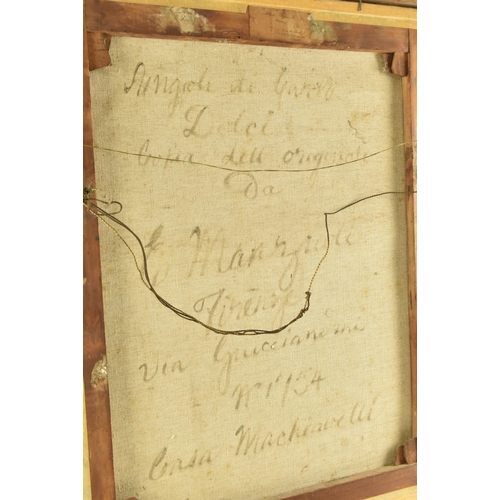 Angiolo di Carlo
Dolci
Copia dell originale
Da
G Manzuoli
Firenze
Via Guicciardini
Casa Machiavelli